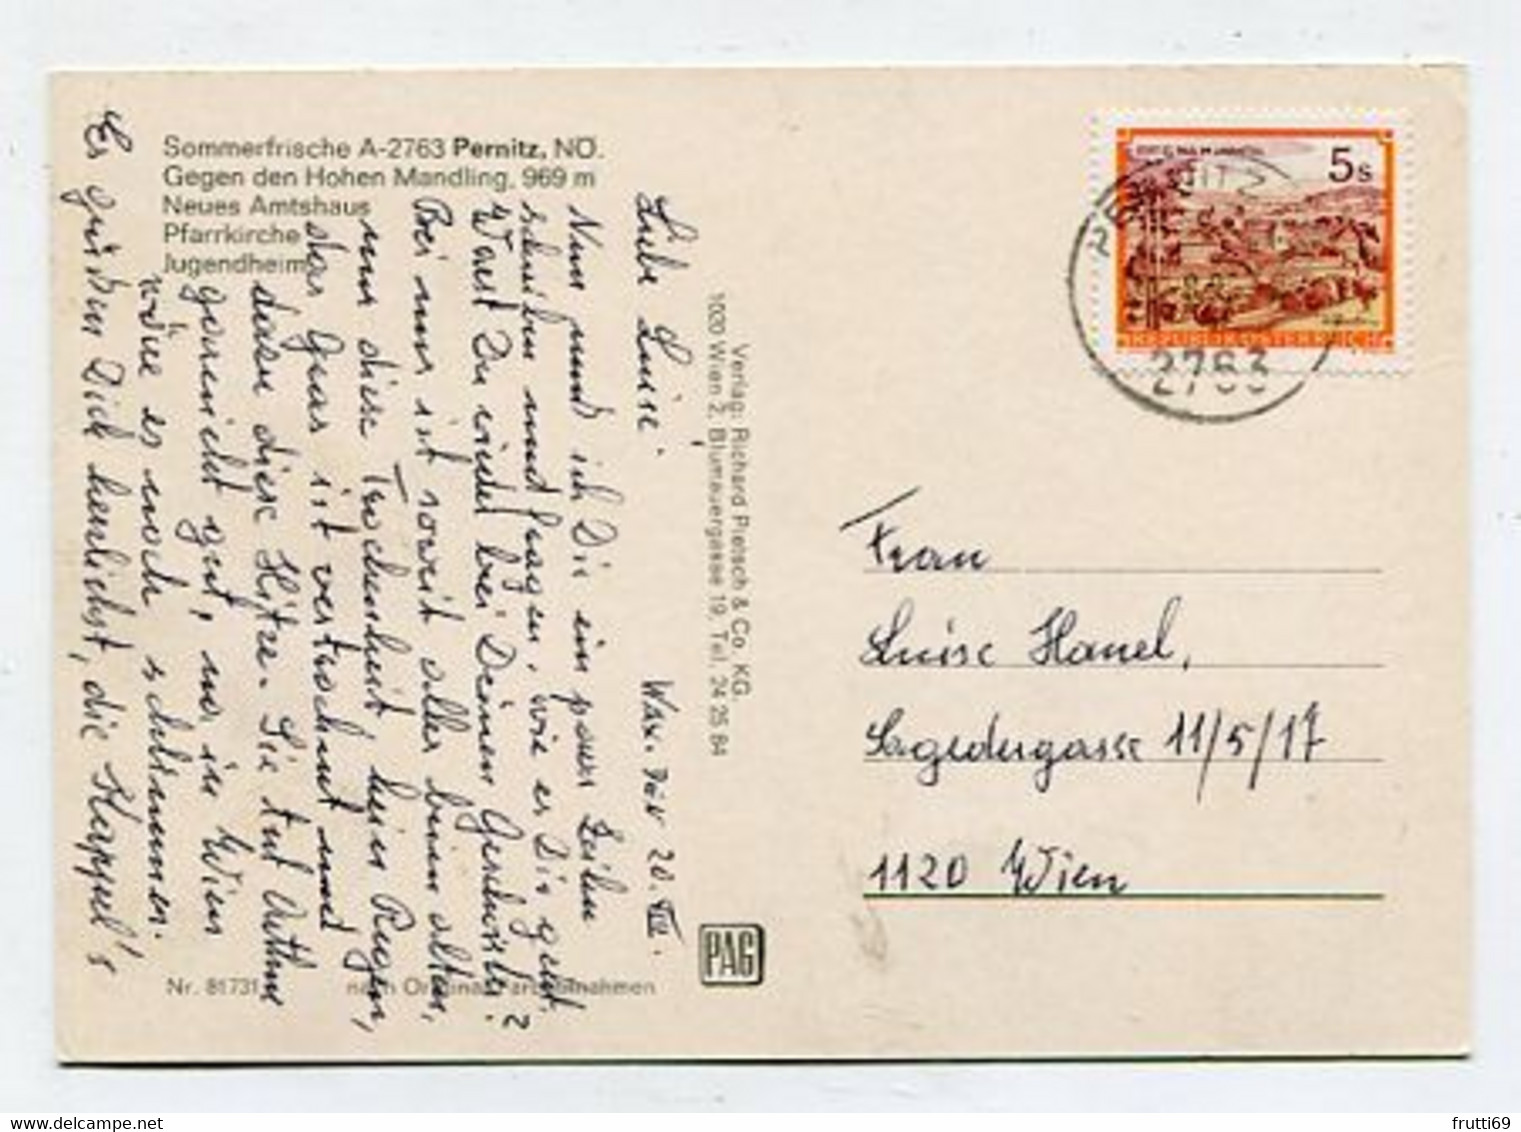 Sommerfrische A-2763 Pernitz, NÖ.
Gegen den Hohen Mandling, 969 m
Neues Amtshaus
Pfarrkirche
Jugendheim
Liebe Luise!
20. VIII.
Nun muß ich Dir ein paar Zeilen
schreiben und fragen, wie es Dir geht.
Warst Du wieder bei Deinen Geschwister?
Bei uns ist soweit alles beim alten,
nur diese Trockenheit, kein Regen,
das Gras ist vertrocknet und
dazu diese Hitze. Sie tut
garnicht gut, wo in Wien
wäre es noch schlimmer.
Es grüßen Dich herzlichst, die Happel's
Verlag: Richard Pietsch & Co. KG.
1020 Wien 2, Blumauergasse 19, Tel. 24 25 84
Nr. 81731
nach Original-Farbaufnahmen
PAG
5 S
REPUBLIK ÖSTERREICH
PERNITZ
2763
Frau
Luise Hanel,
Sagedergasse 11/5/17
1120 Wien
frutti69